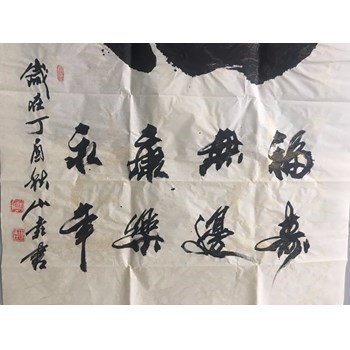 福壽
無邊
康樂
永年
歲在丁酉秋山書